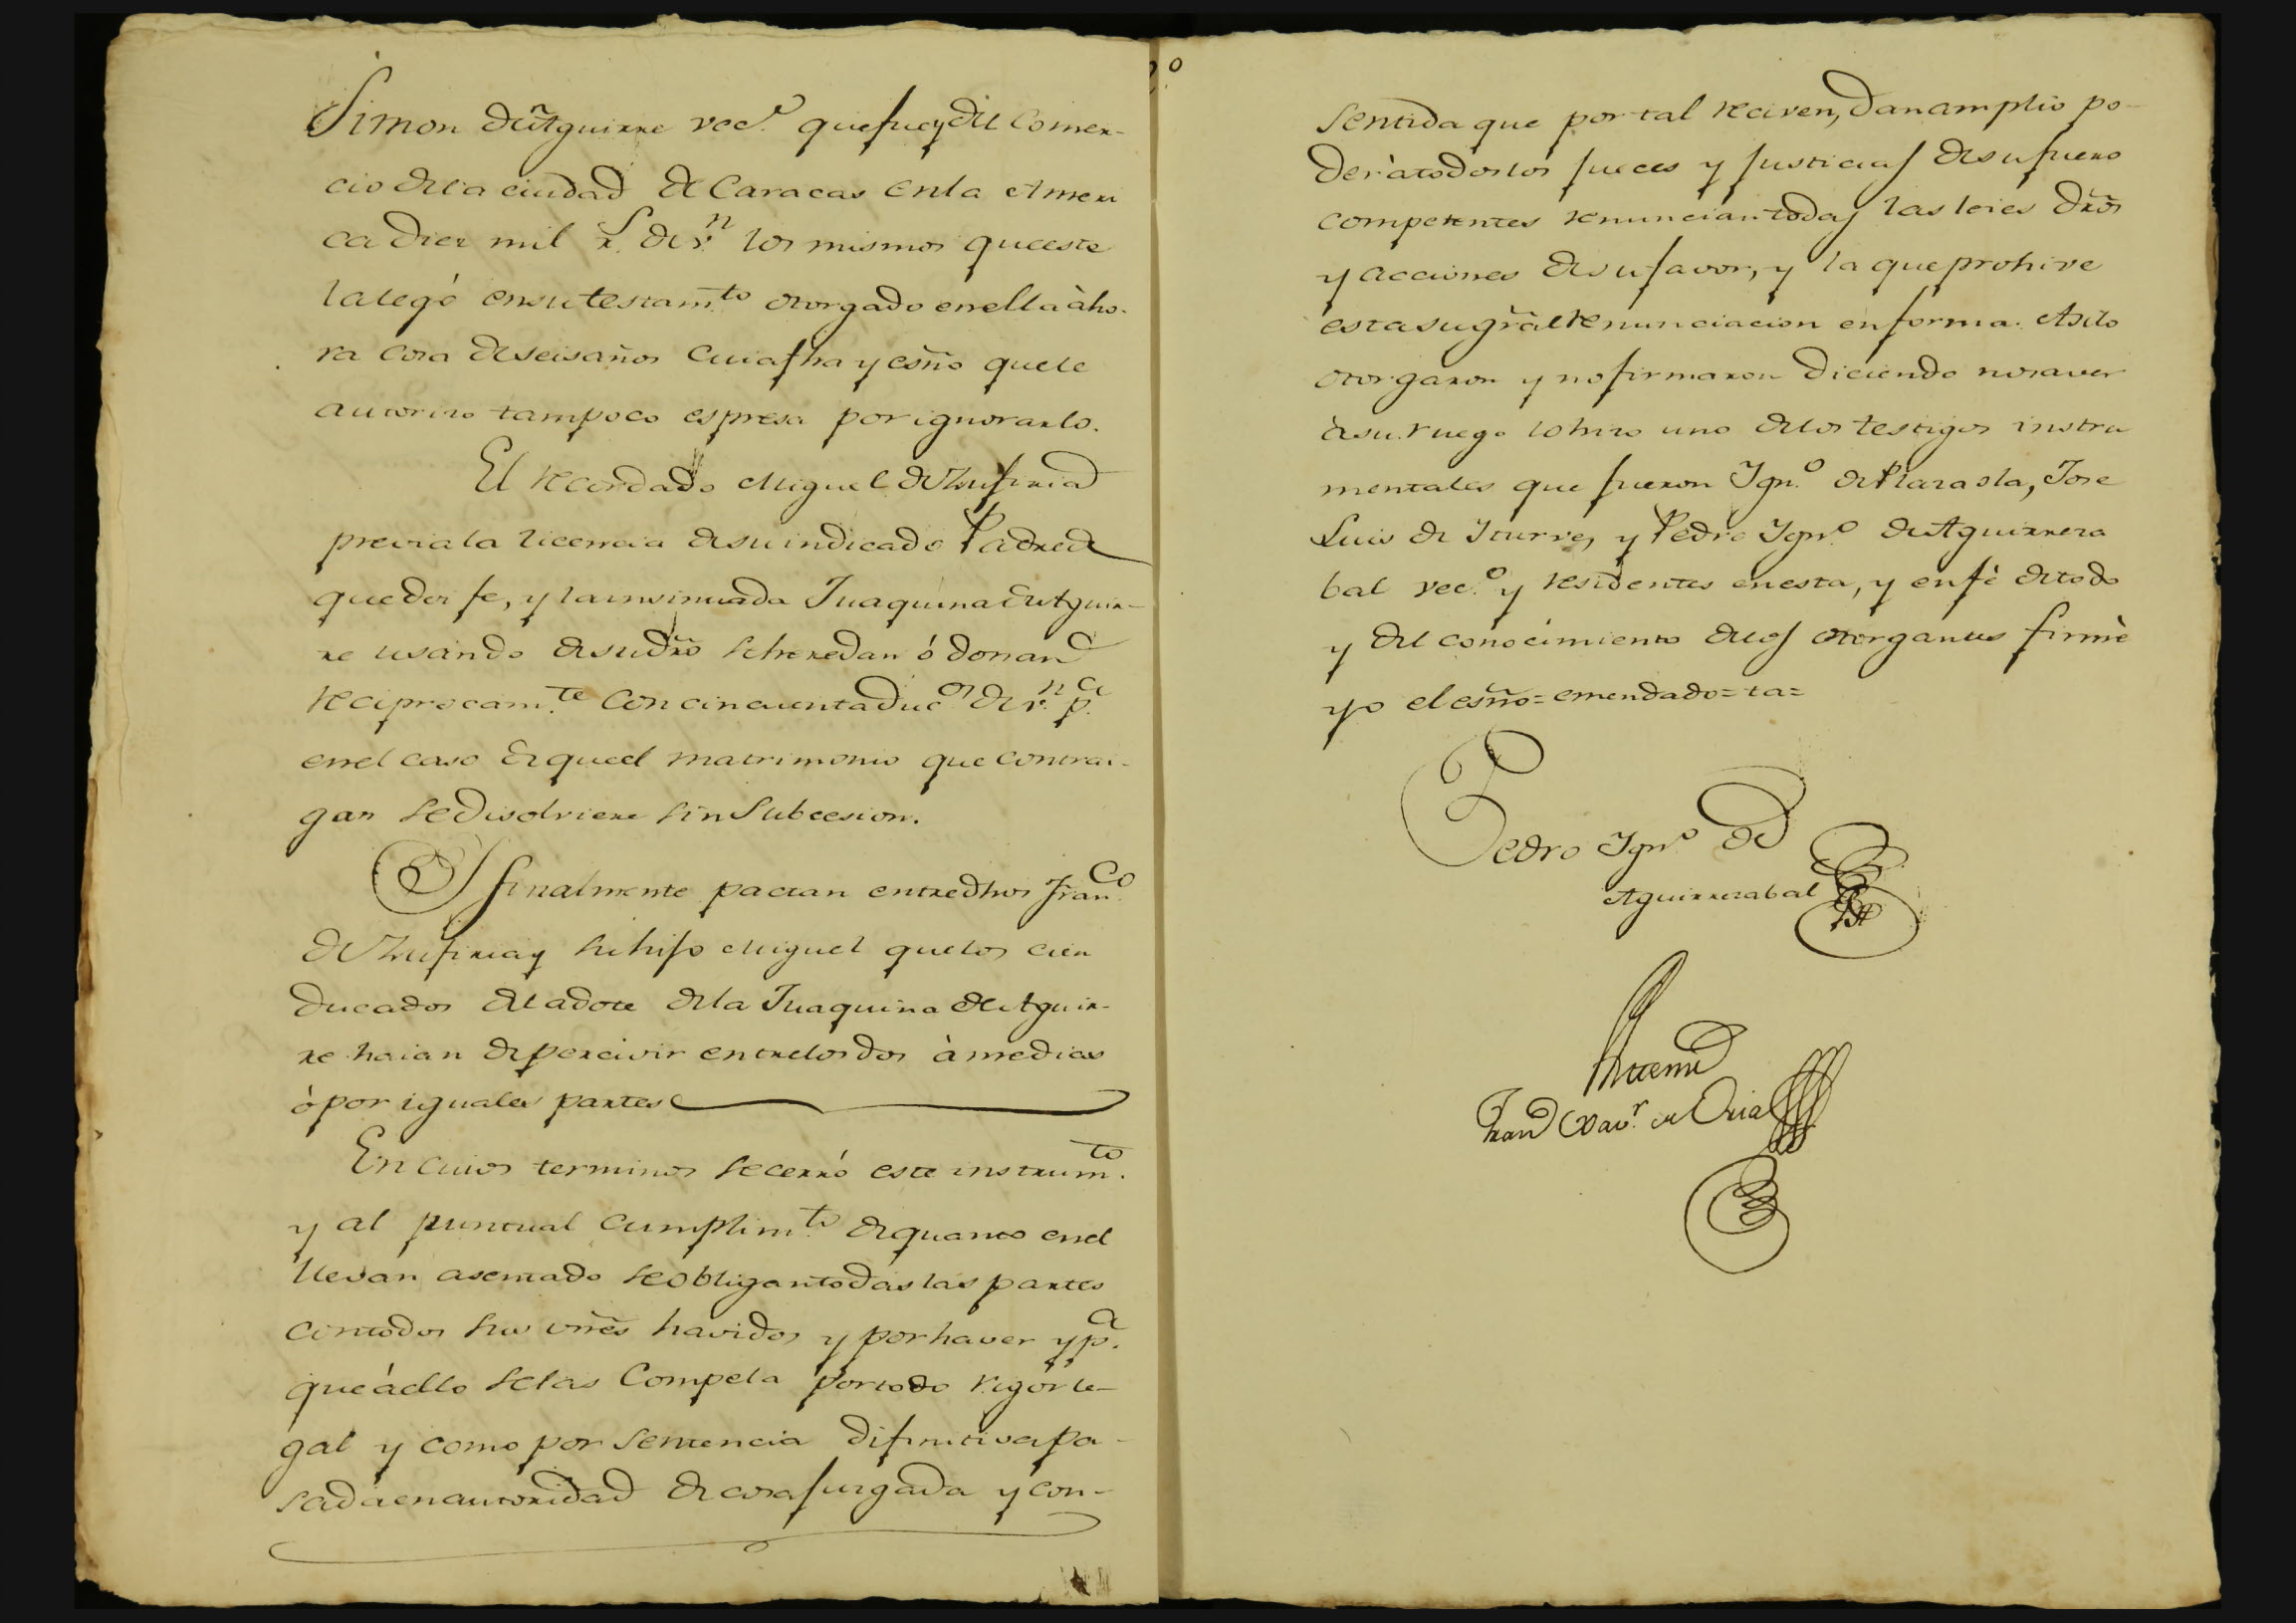 Simon de Aguirre vec.º que fue y del Comer-
cio de la ciudad de Caracas en la Ameri
ca diez mil r.s de v.n los mismos que este
la legó en su testam.to otorgado en ella àho-
ra cosa de seis años cuia fha y esño que le
autorizo tampoco espresa por ignorarlo.
El recordado Miguel de Zufiria
previa la licencia de su indicado Padre de
que doi fe, y la insinuada Juaquina de Aguir-
re usando de su dro se heredan ó donan
reciprocam.te con cincuenta duc.os de v.n p.a
en el caso de que el matrimonio que contrai-
gan se disolviere sin Subcesion.
Y finalmente pactan entre dhos Fran.co
de Zufiria y su hijo Miguel que los cien
ducados de la dote de la Juaquina de Aguir-
re haian de percivir entre los dos à medias
ò por iguales partes
En cuios terminos se cerró este instrum.to
y al puntual cumplim.to de quanto en el
llevan asentado se obligan todas las partes
con todos sus vñes havidos y por haver y p.a
que á ello se las Compela por todo rigor le-
gal y como por Sentencia difinitiva pa-
sada en autoridad de cosa juzgada y con-
sentida que por tal reciven, dan amplio po-
der à todos los jueces y justicias de su fuero
competentes renuncian todas las leies dros
y acciones de su favor, y la que prohive
esta su gral renunciacion en forma. Asi lo
otorgaron y no firmaron diciendo no saver
à su ruego lo hizo uno de los testigos instru
mentales que fueron Ign.º de Plazaola, Jose
Luis de Iturve, y Pedro Ign.º de Aguirreza
bal vec.º y residentes en esta, y en fè de todo
y del conocimiento de los otorgantes firmè
yo el esño = emendado = ta =
Pedro Ign.º de
Aguirrezabal
Ante mi
Fran.co Xav.r de Oria